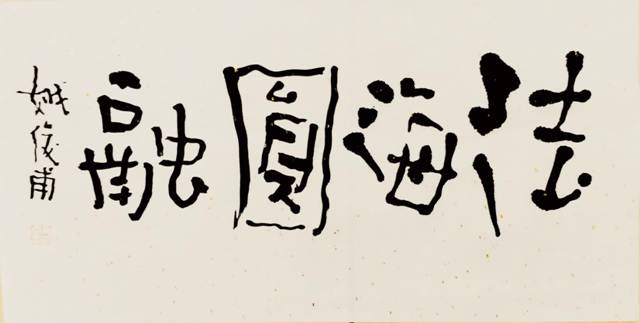 法海圓融
俊甫